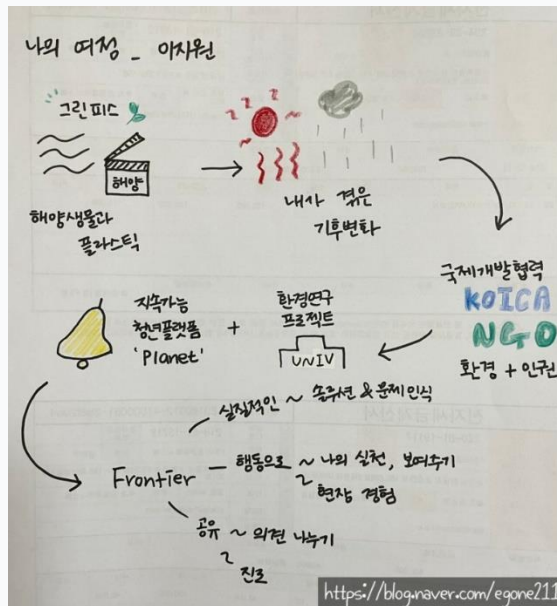 나의 여정 _ 이지원
그린피스
해양
해양생물과
플라스틱
내가 겪은
기후변화
국제개발협력
KOICA
NGO
환경 + 인권
지속가능
청년플랫폼
'Planet'
+
환경연구
프로젝트
UNIV
Frontier
실질적인 ~ 솔루션 & 문제인식
행동으로 ~ 나의 실천, 보여주기
~ 현장 경험
공유 ~ 의견 나누기
~ 진로
https://blog.naver.com/egone211